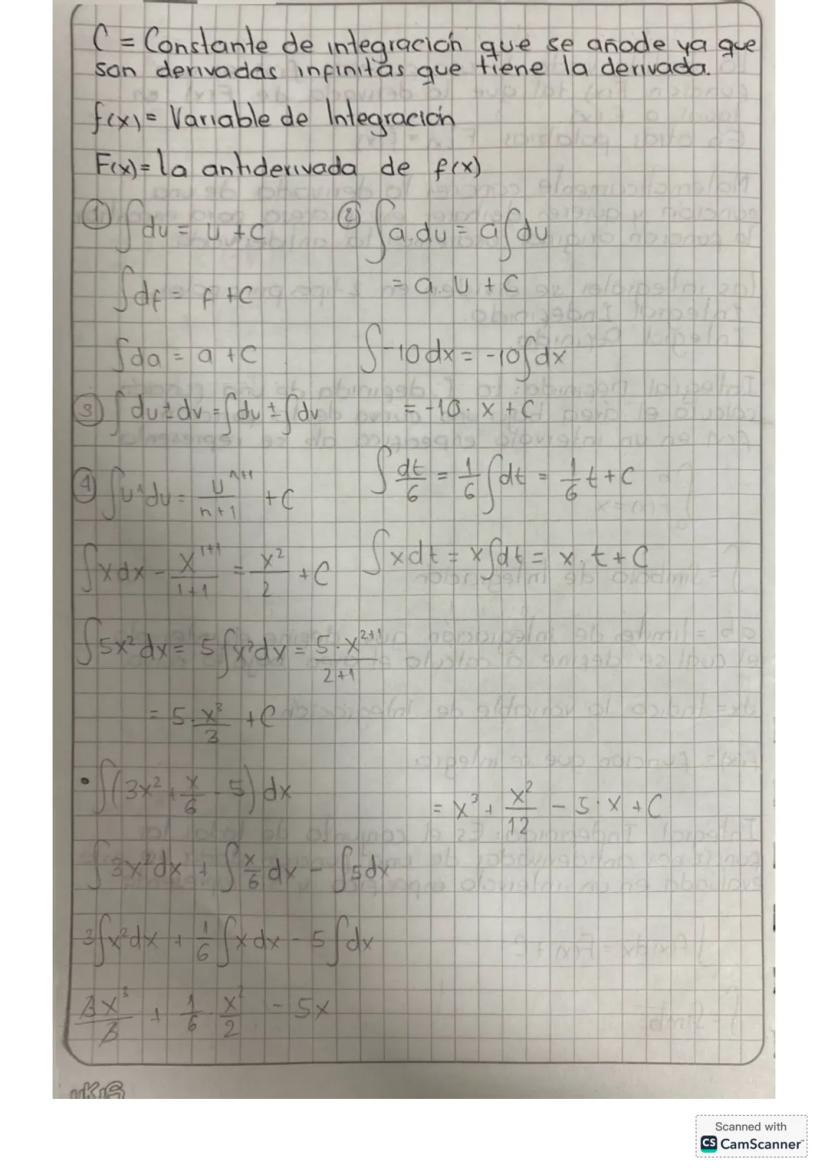 C = Constante de integración que se añade ya que
son derivadas infinitas que tiene la derivada.
f(x) = Variable de Integración
F(x) = la antiderivada de f(x)
① ∫du = u + C
∫df = f + C
∫da = a + C
② ∫a.du = a∫du
= a.u + C
∫-10dx = -10∫dx
= -10 · x + C
∫dt/6 = 1/6 ∫dt = 1/6 t + C
∫xdt = x∫dt = x . t + C
③ ∫du ± dv = ∫du ± ∫dv
④ ∫uⁿdu = uⁿ⁺¹/n+1 + C
∫xdx - x¹⁺¹/1+1 = x²/2 + C
∫5x²dx = 5∫x²dx = 5·x²⁺¹/2+1
= 5·x³/3 + C
• ∫(3x² + x/6 - 5)dx
∫3x²dx + ∫x/6 dx - ∫5dx
3∫x²dx + 1/6 ∫xdx - 5∫dx
3x³/3 + 1/6 · x²/2 - 5x
= x³ + x²/12 - 5·x + C
Scanned with
CS CamScanner